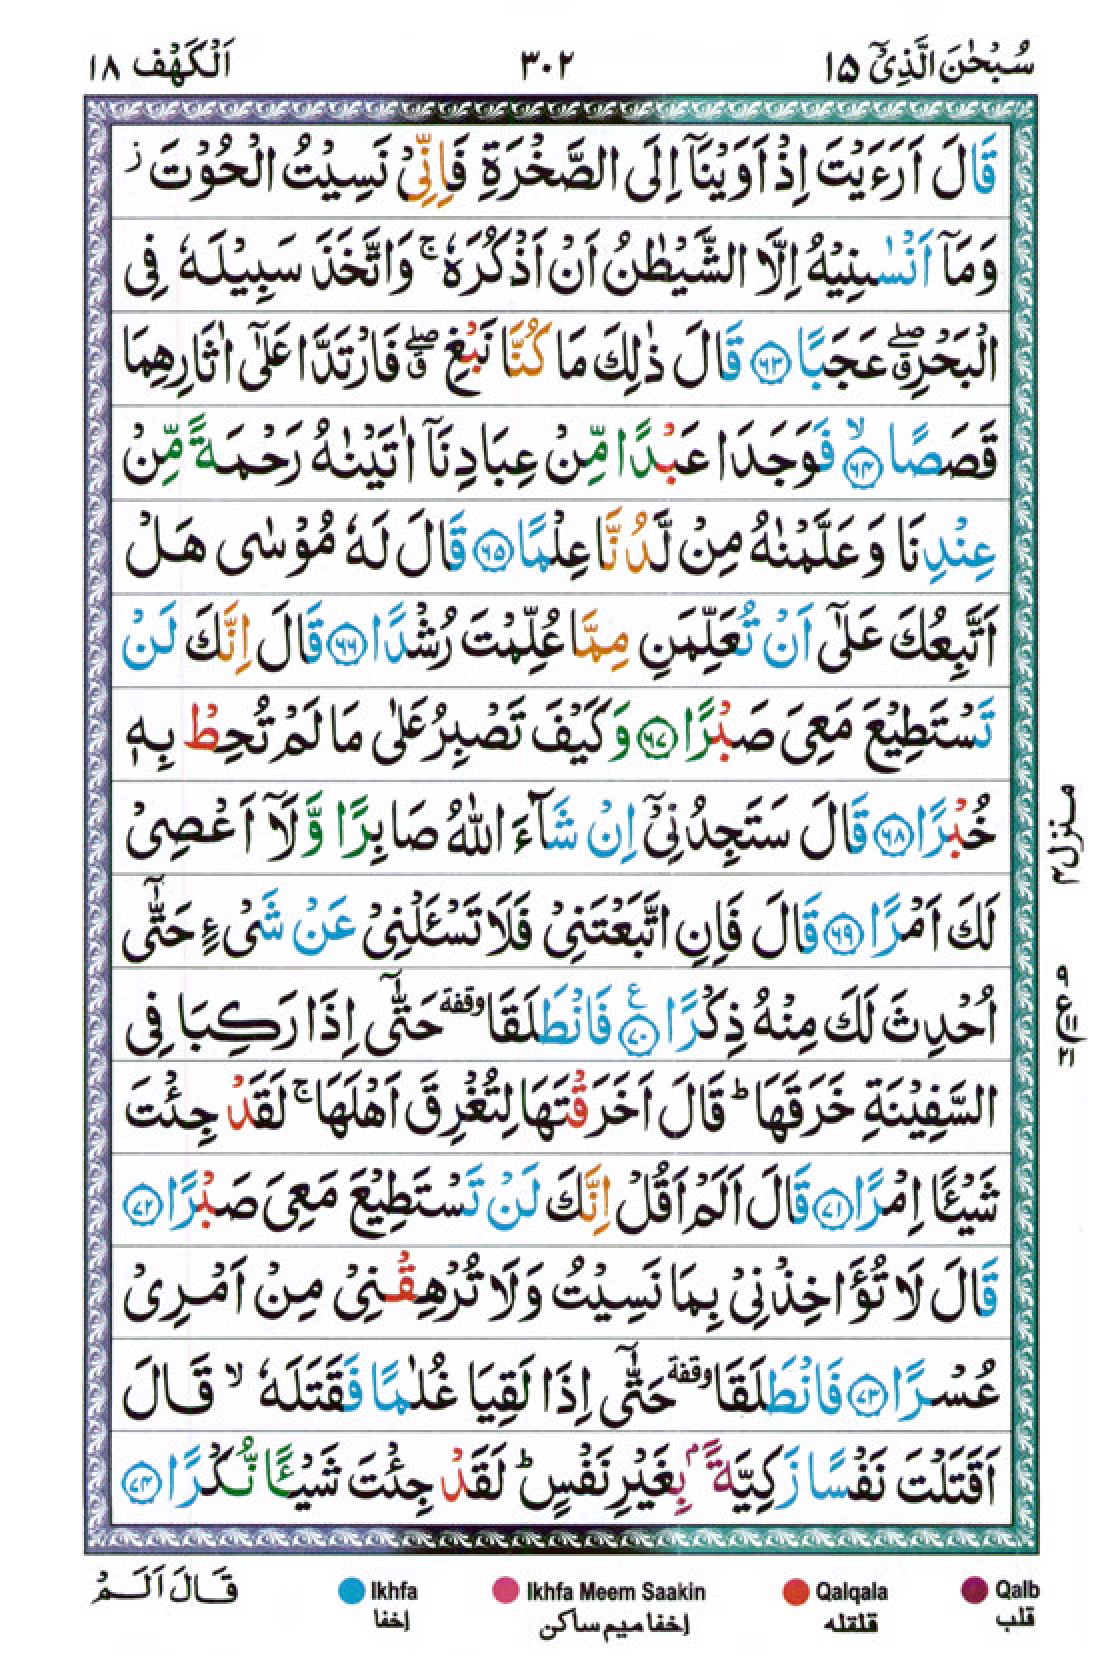 سُبْحٰنَ الَّذِیْۤ ١٥ ٣٠٢ اَلْكَهْف ١٨
قَالَ اَرَءَیْتَ اِذْ اَوَیْنَاۤ اِلَی الصَّخْرَةِ فَاِنِّیْ نَسِیْتُ الْحُوْتَ ز
وَمَاۤ اَنْسٰىنِیْهُ اِلَّا الشَّیْطٰنُ اَنْ اَذْكُرَهٗ ۚ وَاتَّخَذَ سَبِیْلَهٗ فِی
الْبَحْرِ ۖۗ عَجَبًا ۝۶۳ قَالَ ذٰلِكَ مَا كُنَّا نَبْغِ ۖۗ فَارْتَدَّا عَلٰۤی اٰثَارِهِمَا
قَصَصًا ۝۶۴ ۙ فَوَجَدَا عَبْدًا مِّنْ عِبَادِنَاۤ اٰتَیْنٰهُ رَحْمَةً مِّنْ
عِنْدِنَا وَعَلَّمْنٰهُ مِنْ لَّدُنَّا عِلْمًا ۝۶۵ قَالَ لَهٗ مُوْسٰی هَلْ
اَتَّبِعُكَ عَلٰۤی اَنْ تُعَلِّمَنِ مِمَّا عُلِّمْتَ رُشْدًا ۝۶۶ قَالَ اِنَّكَ لَنْ
تَسْتَطِیْعَ مَعِیَ صَبْرًا ۝۶۷ وَكَیْفَ تَصْبِرُ عَلٰی مَا لَمْ تُحِطْ بِهٖ
خُبْرًا ۝۶۸ قَالَ سَتَجِدُنِیْۤ اِنْ شَآءَ اللّٰهُ صَابِرًا وَّلَاۤ اَعْصِیْ
لَكَ اَمْرًا ۝۶۹ قَالَ فَاِنِ اتَّبَعْتَنِیْ فَلَا تَسْـَٔلْنِیْ عَنْ شَیْءٍ حَتّٰۤی
اُحْدِثَ لَكَ مِنْهُ ذِكْرًا ۝۷۰ ع فَانْطَلَقَا وقفة حَتّٰۤی اِذَا رَكِبَا فِی
السَّفِیْنَةِ خَرَقَهَا ؕ قَالَ اَخَرَقْتَهَا لِتُغْرِقَ اَهْلَهَا ۚ لَقَدْ جِئْتَ
شَیْـًٔا اِمْرًا ۝۷۱ قَالَ اَلَمْ اَقُلْ اِنَّكَ لَنْ تَسْتَطِیْعَ مَعِیَ صَبْرًا ۝۷۲
قَالَ لَا تُؤَاخِذْنِیْ بِمَا نَسِیْتُ وَلَا تُرْهِقْنِیْ مِنْ اَمْرِیْ
عُسْرًا ۝۷۳ فَانْطَلَقَا وقفة حَتّٰۤی اِذَا لَقِیَا غُلٰمًا فَقَتَلَهٗ ۙ قَالَ
اَقَتَلْتَ نَفْسًا زَكِیَّةًۢ بِغَیْرِ نَفْسٍ ؕ لَقَدْ جِئْتَ شَیْـًٔا نُّكْرًا ۝۷۴
منزل ۴
ع
قَالَ اَلَمْ
Ikhfa
اخفا
Ikhfa Meem Saakin
اخفا میم ساکن
Qalqala
قلقله
Qalb
قلب